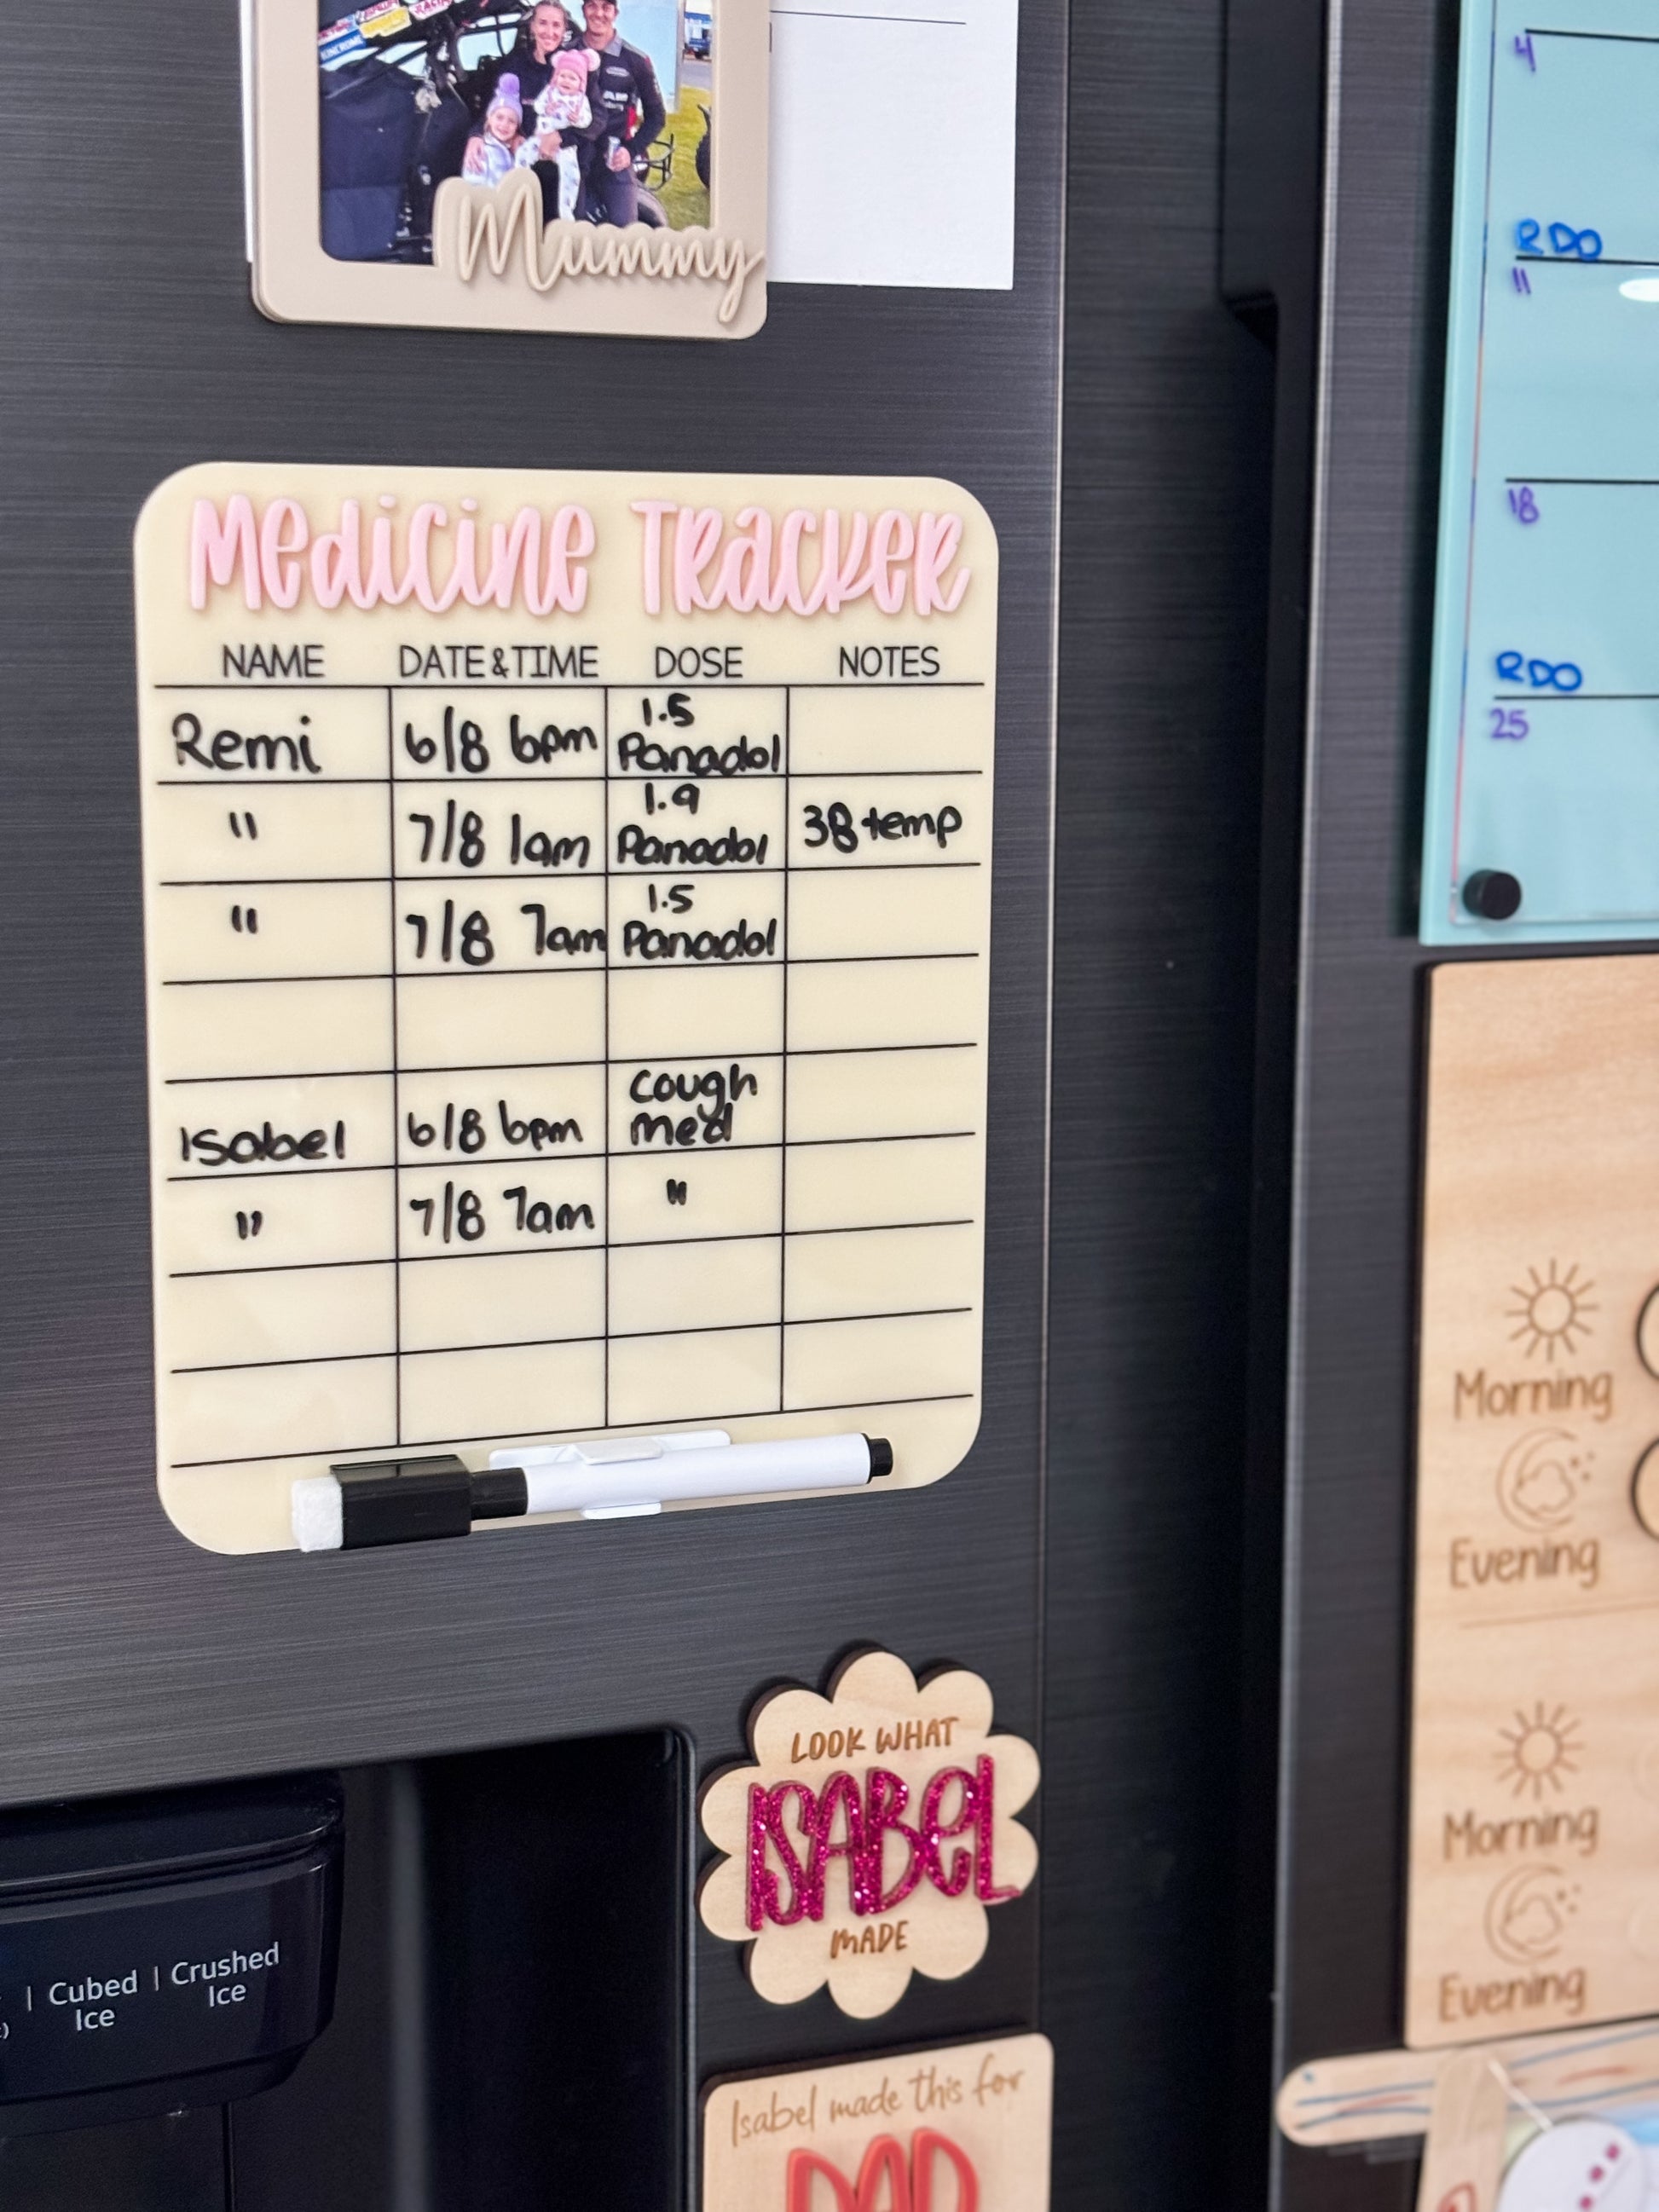 RACING
KINCROME
Mummy
Medicine Tracker
NAME DATE&TIME DOSE NOTES
Remi 6/8 6pm 1.5 Panadol
" 7/8 1am 1.9 Panadol 38 temp
" 7/8 7am 1.5 Panadol
Isabel 6/8 6pm cough med
" 7/8 7am "
LOOK WHAT
ISABEL
MADE
Isabel made this for
DAD
Cubed Ice | Crushed Ice
4
RDO
11
18
RDO
25
Morning
Evening
Morning
Evening